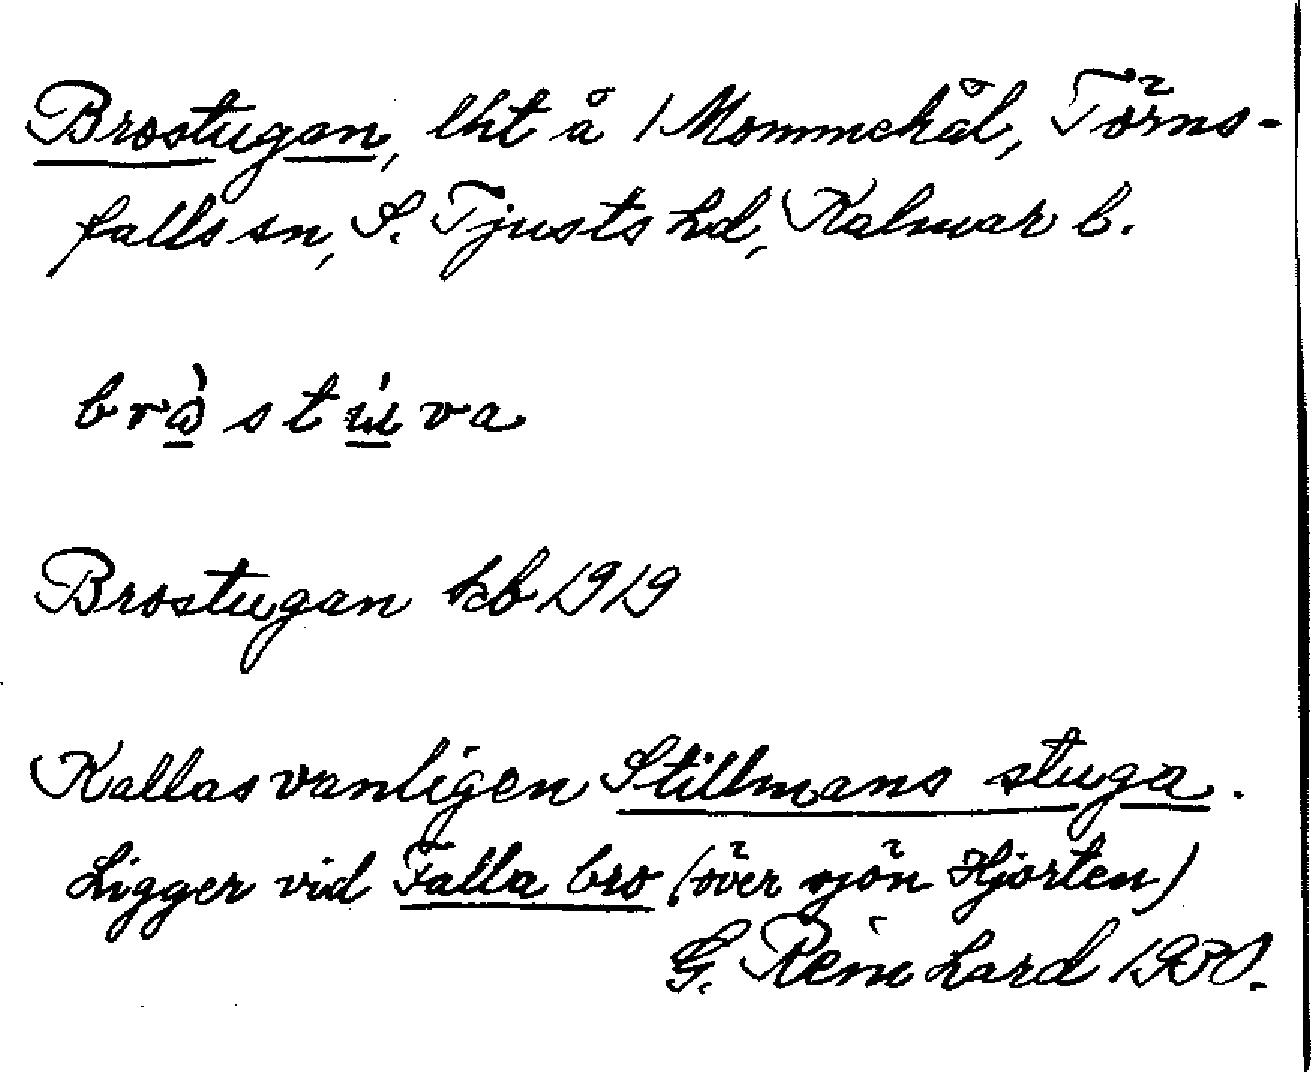 Brostugan, lht å 1 Mommehål, Törns-
falls sn, S. Tjusts hd, Kalmar l.
brò̲stú̲va
Brostugan kb 1919
Kallas vanligen Stillmans stuga.
Ligger vid Falla bro (över sjön Hjorten)
G. Reinhard 1930.